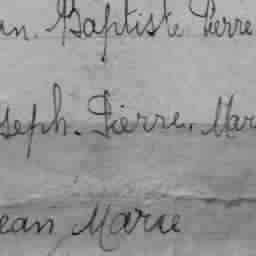 an. Baptiste Pierre
seph. Pierre. Mar
ean Marie